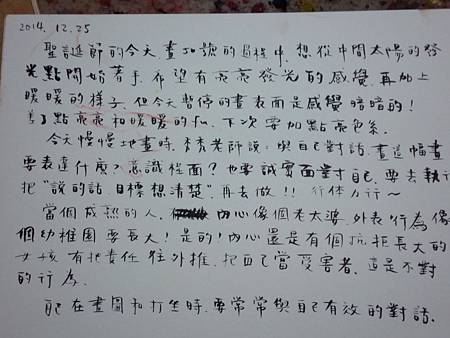 2014. 12.25
聖誕節的今天,畫20號的過程中,想從中間太陽的發
光點開始著手,希望有亮亮發光的感覺,再加上
暖暖的樣子,但今天暫停的畫表面是感覺暗暗的!
了點亮亮和暖暖的fu.下次要加點亮色系.
今天慢慢地畫時,老師說:與自己對話,畫這幅畫
要表達什麼?意識程面?也要誠實面對自己,要去執行
把"說的話、目標想清楚",再去做!!行体力行~
當個成熟的人,內心像個老太婆,外表/行為像
個幼稚園要長大!是的!內心還是有個抗拒長大的
女孩,有把責任往外推,把自己當受害者,這是不對
的行為.
在畫圖和打坐時,要常常與自己有效的對話.